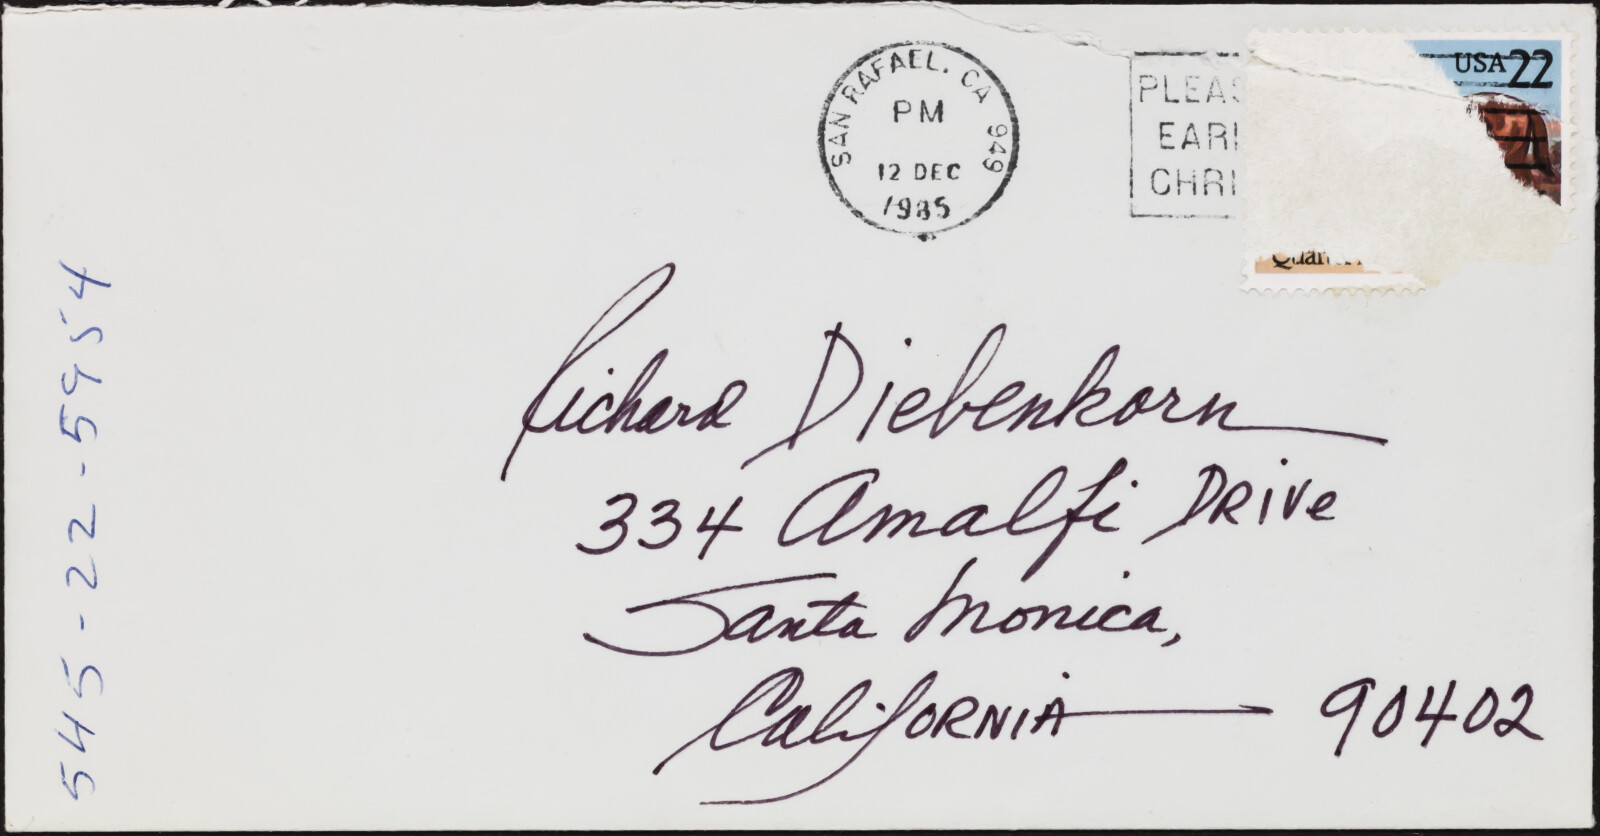 SAN RAFAEL, CA 949
PM
12 DEC
1985
PLEAS
EARL
CHRI
USA 22
Quar
Richard Diebenkorn
334 Amalfi Drive
Santa Monica,
California 90402
545-22-5954